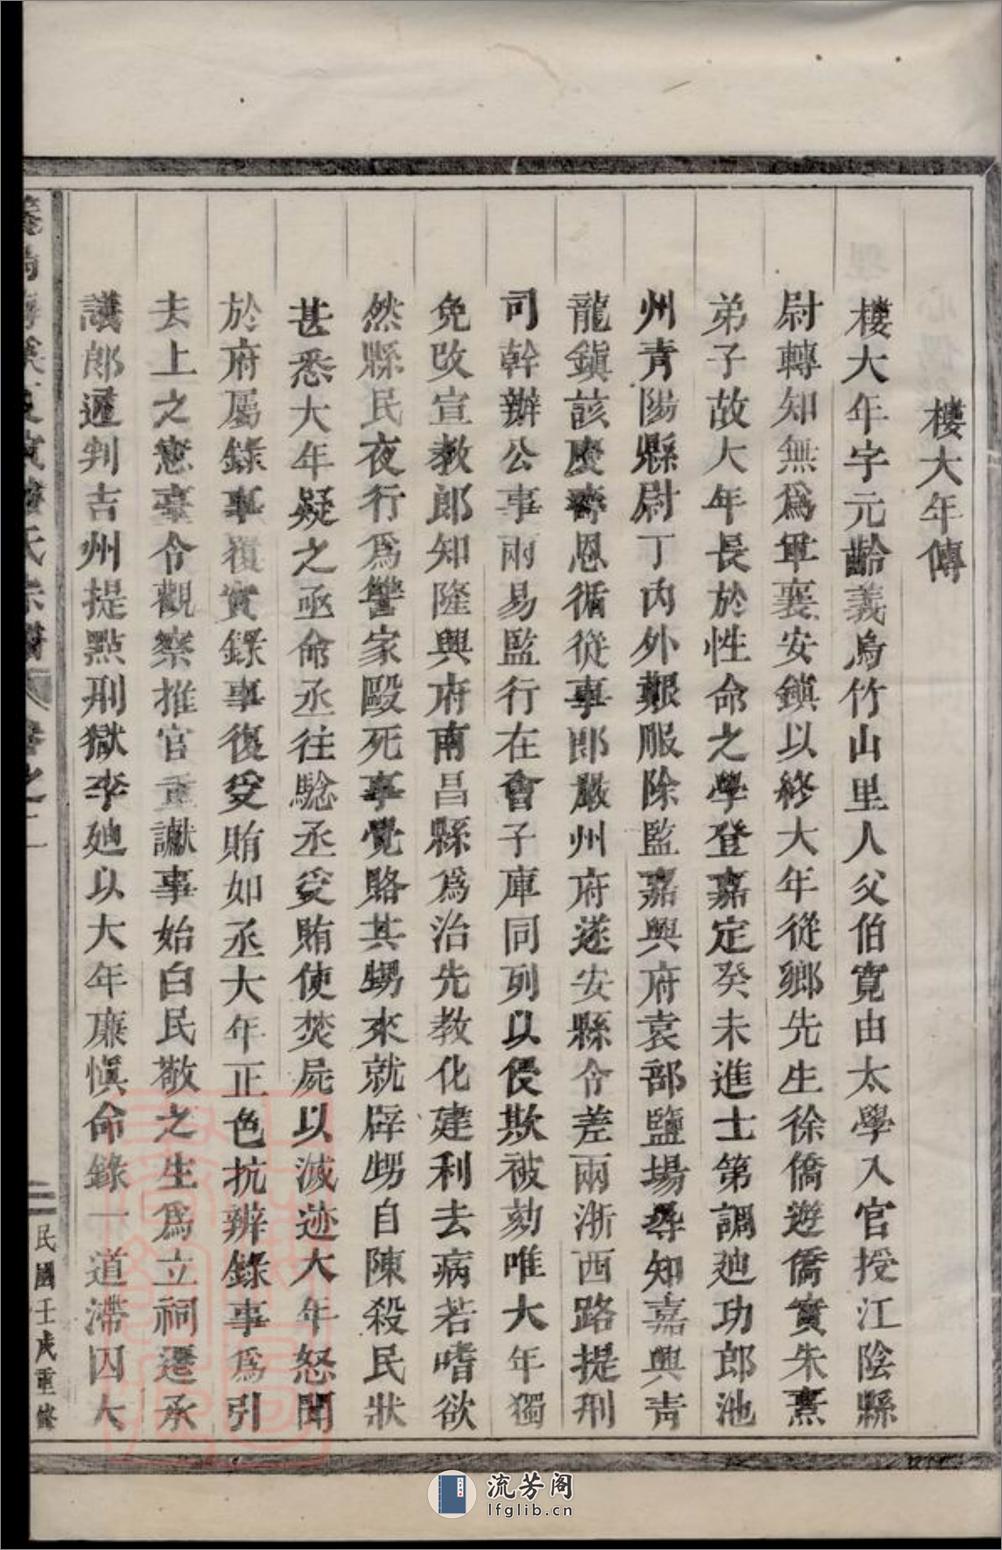 樓大年傳
樓大年字元齡義烏竹山里人父伯寬由太學入官授江陰縣
尉轉知無爲軍襄安鎮以終大年從鄉先生徐僑遊僑實朱熹
弟子故大年長於性命之學登嘉定癸未進士第調廸功郎池
州青陽縣尉丁內外艱服除監嘉興府袁部鹽場尋知嘉興青
龍鎮該慶壽恩循從事郎嚴州府遂安縣令差兩浙西路提刑
司幹辦公事兩易監行在會子庫同列以侵欺被劾唯大年獨
免改宣教郎知隆興府南昌縣爲治先教化建利去病若嗜欲
然縣民夜行爲讐家毆死事覺賂其甥來就辟甥自陳殺民狀
甚悉大年疑之亟命丞往驗丞受賄使焚屍以滅迹大年怒聞
於府屬錄事覆實錄事復受賄如丞大年正色抗辨錄事爲引
去上之憲臺令觀察推官重讞事始白民敬之生爲立祠遷承
議郎通判吉州提點刑獄李廸以大年廉慎命錄一道滯囚大
氏宗譜 卷之二
二 民國壬戌重修
流芳阁
lfglib.cn